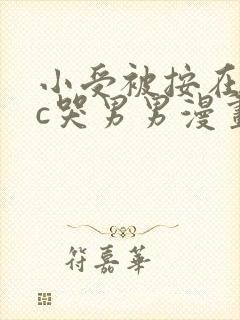 小受被按在
c哭男男漫畫
符嘉華